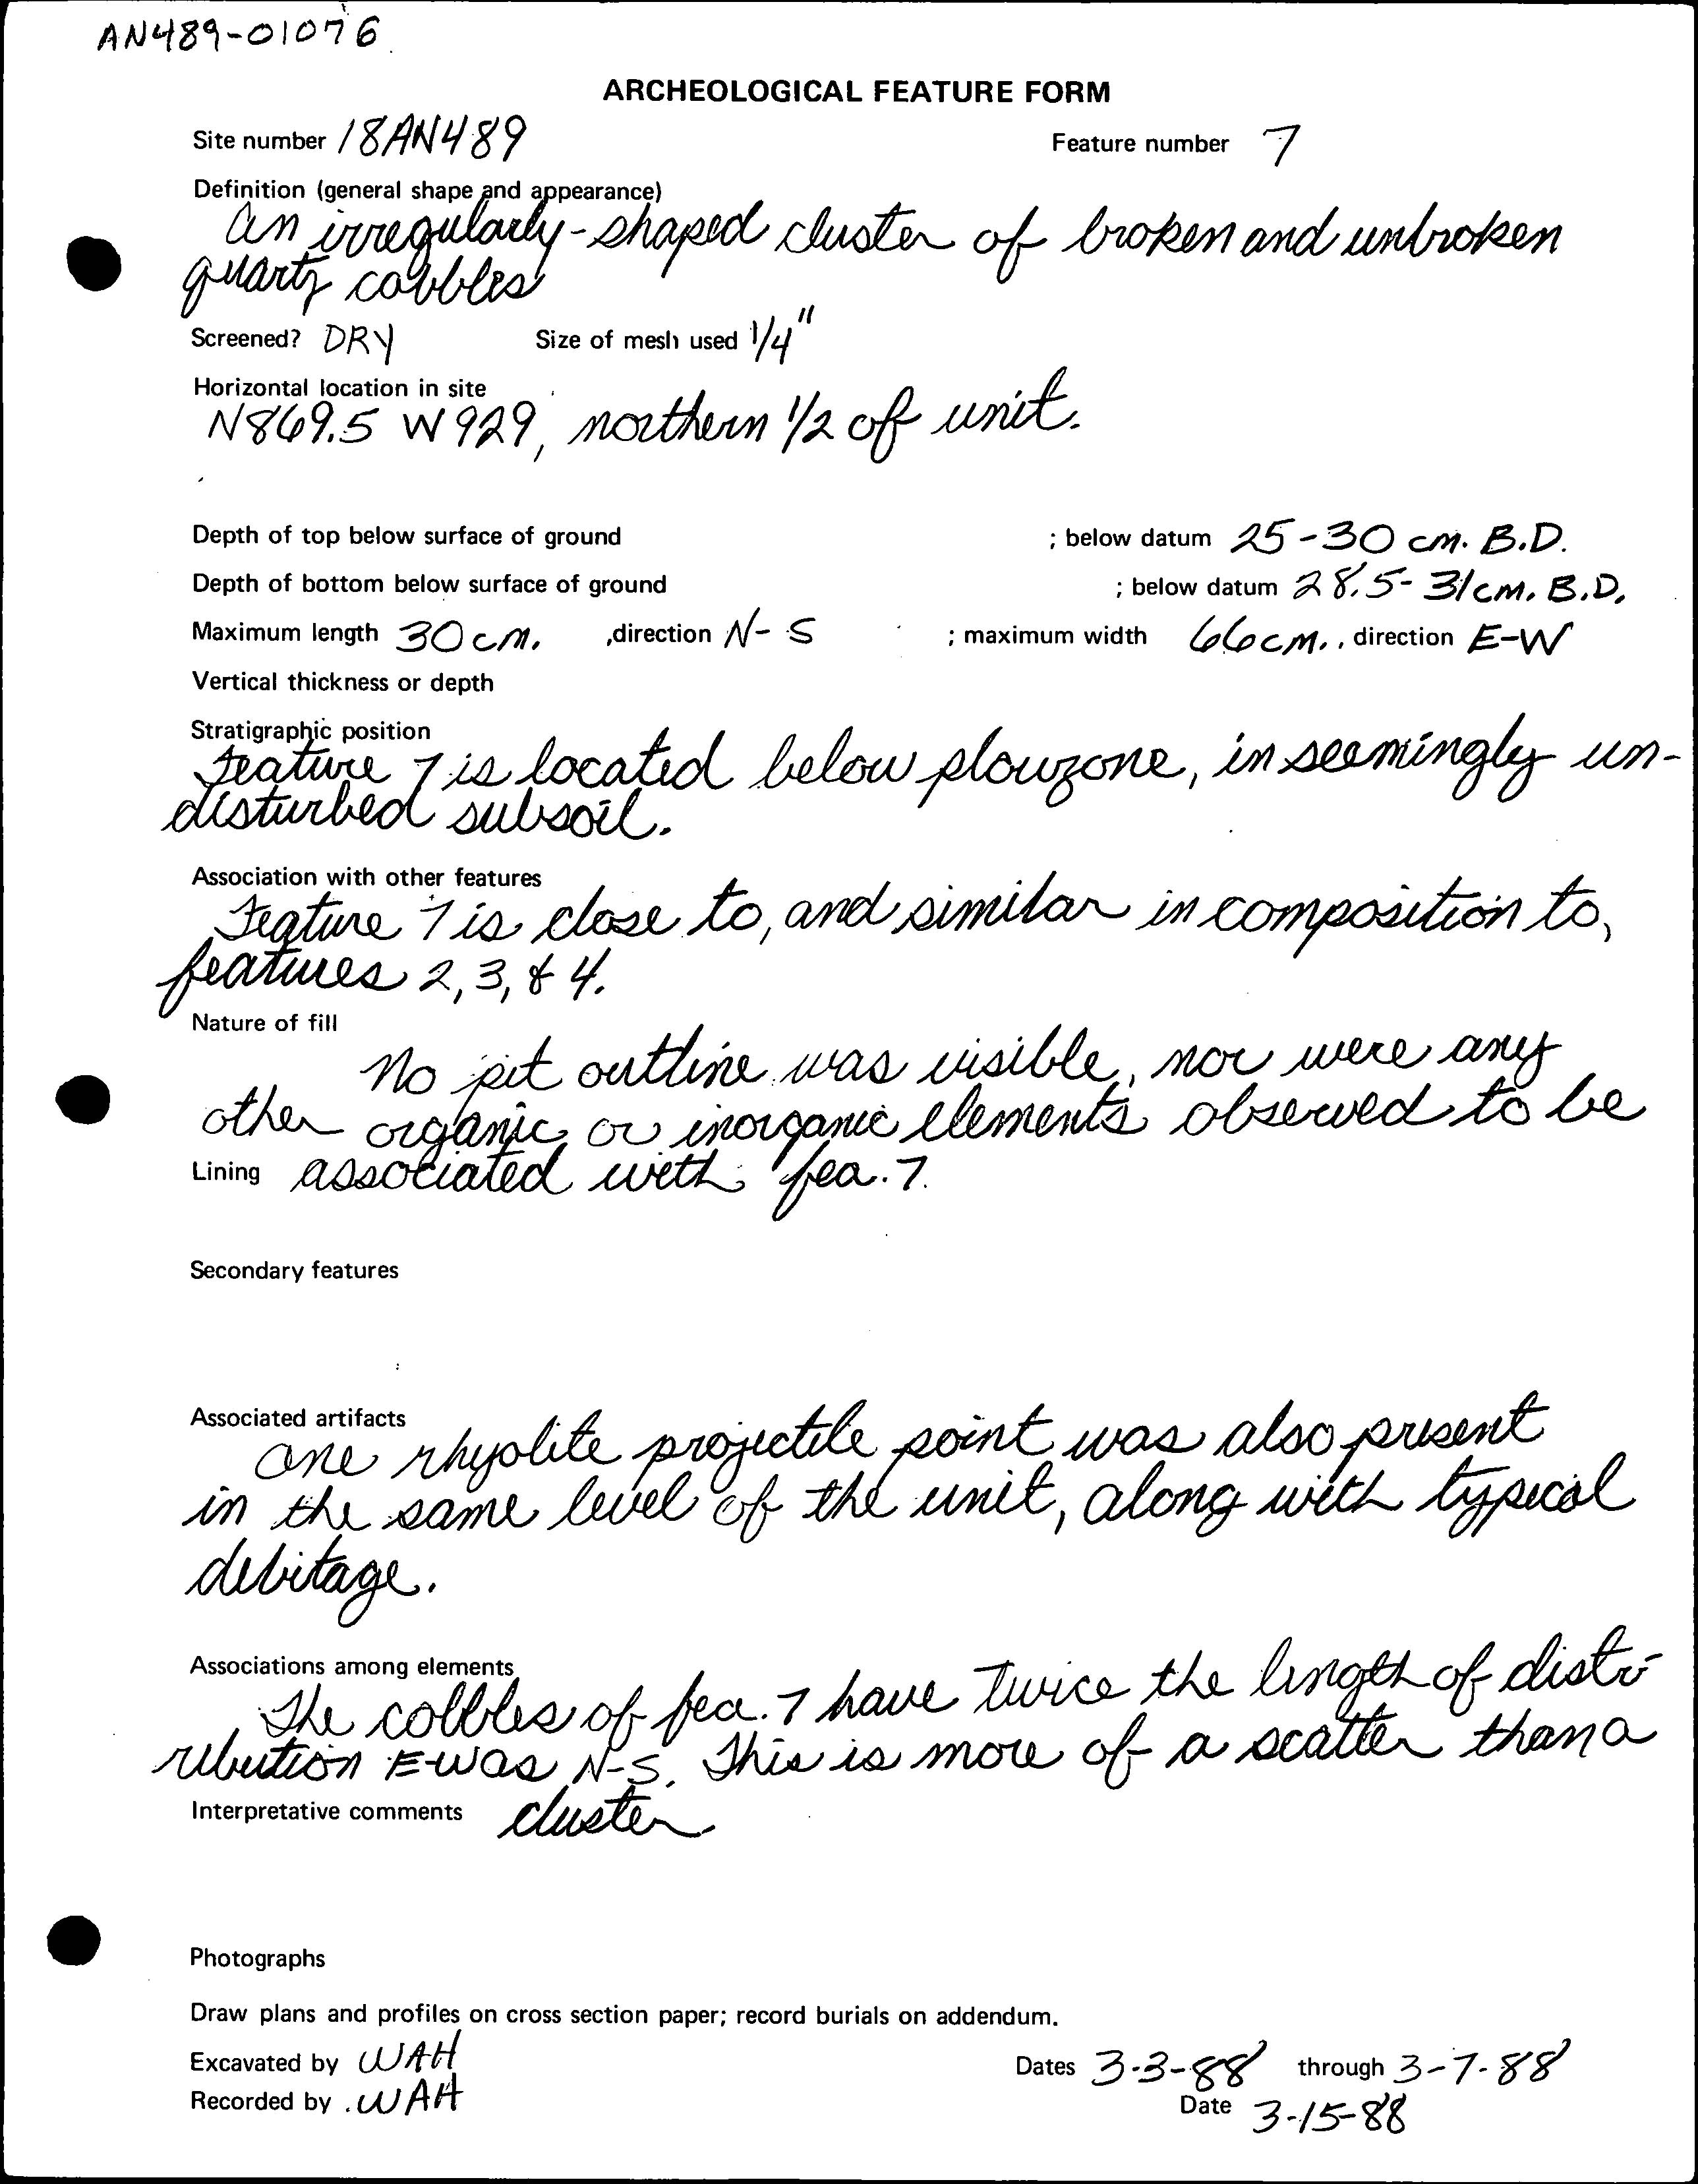 AN489-01076
ARCHEOLOGICAL FEATURE FORM
Site number 18AN489 Feature number 7
Definition (general shape and appearance)
An irregularly-shaped cluster of broken and unbroken
quartz cobbles
Screened? DRY Size of mesh used 1/4"
Horizontal location in site
N869.5 W929, northern 1/2 of unit.
Depth of top below surface of ground ; below datum 25-30 cm. B.D.
Depth of bottom below surface of ground ; below datum 28.5-31cm. B.D.
Maximum length 30 cm. ,direction N-S ; maximum width 66cm. , direction E-W
Vertical thickness or depth
Stratigraphic position
Feature 7 is located below plowzone, in seemingly un-
disturbed subsoil.
Association with other features
Feature 7 is close to, and similar in composition to,
features 2, 3, & 4.
Nature of fill
No pit outline was visible, nor were any
other organic or inorganic elements observed to be
Lining associated with fea. 7.
Secondary features
Associated artifacts
One rhyolite projectile point was also present
in the same level of the unit, along with typical
debitage.
Associations among elements
The cobbles of fea. 7 have twice the length of distri-
ribution E-W as N-S. This is more of a scatter than a
Interpretative comments cluster.
Photographs
Draw plans and profiles on cross section paper; record burials on addendum.
Excavated by WAH Dates 3-3-88 through 3-7-88
Recorded by WAH Date 3-15-88